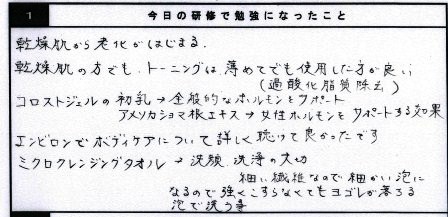 1 今日の研修で勉強になったこと
乾燥肌から老化がはじまる.
乾燥肌の方でも、トーニングは薄めてでも使用した方が良い
(過酸化脂質除去)
コロストジェルの初乳→全般的なホルモンをサポート
アメリカショマ根エキス→女性ホルモンをサポートする効果
エンビロンでボディケアについて詳しく聴けて良かったです
ミクロクレンジングタオル→洗顔、洗浄の大切
細い繊維なので細かい泡に
なるので強くこすらなくてもヨゴレが落ちる
泡で洗う事